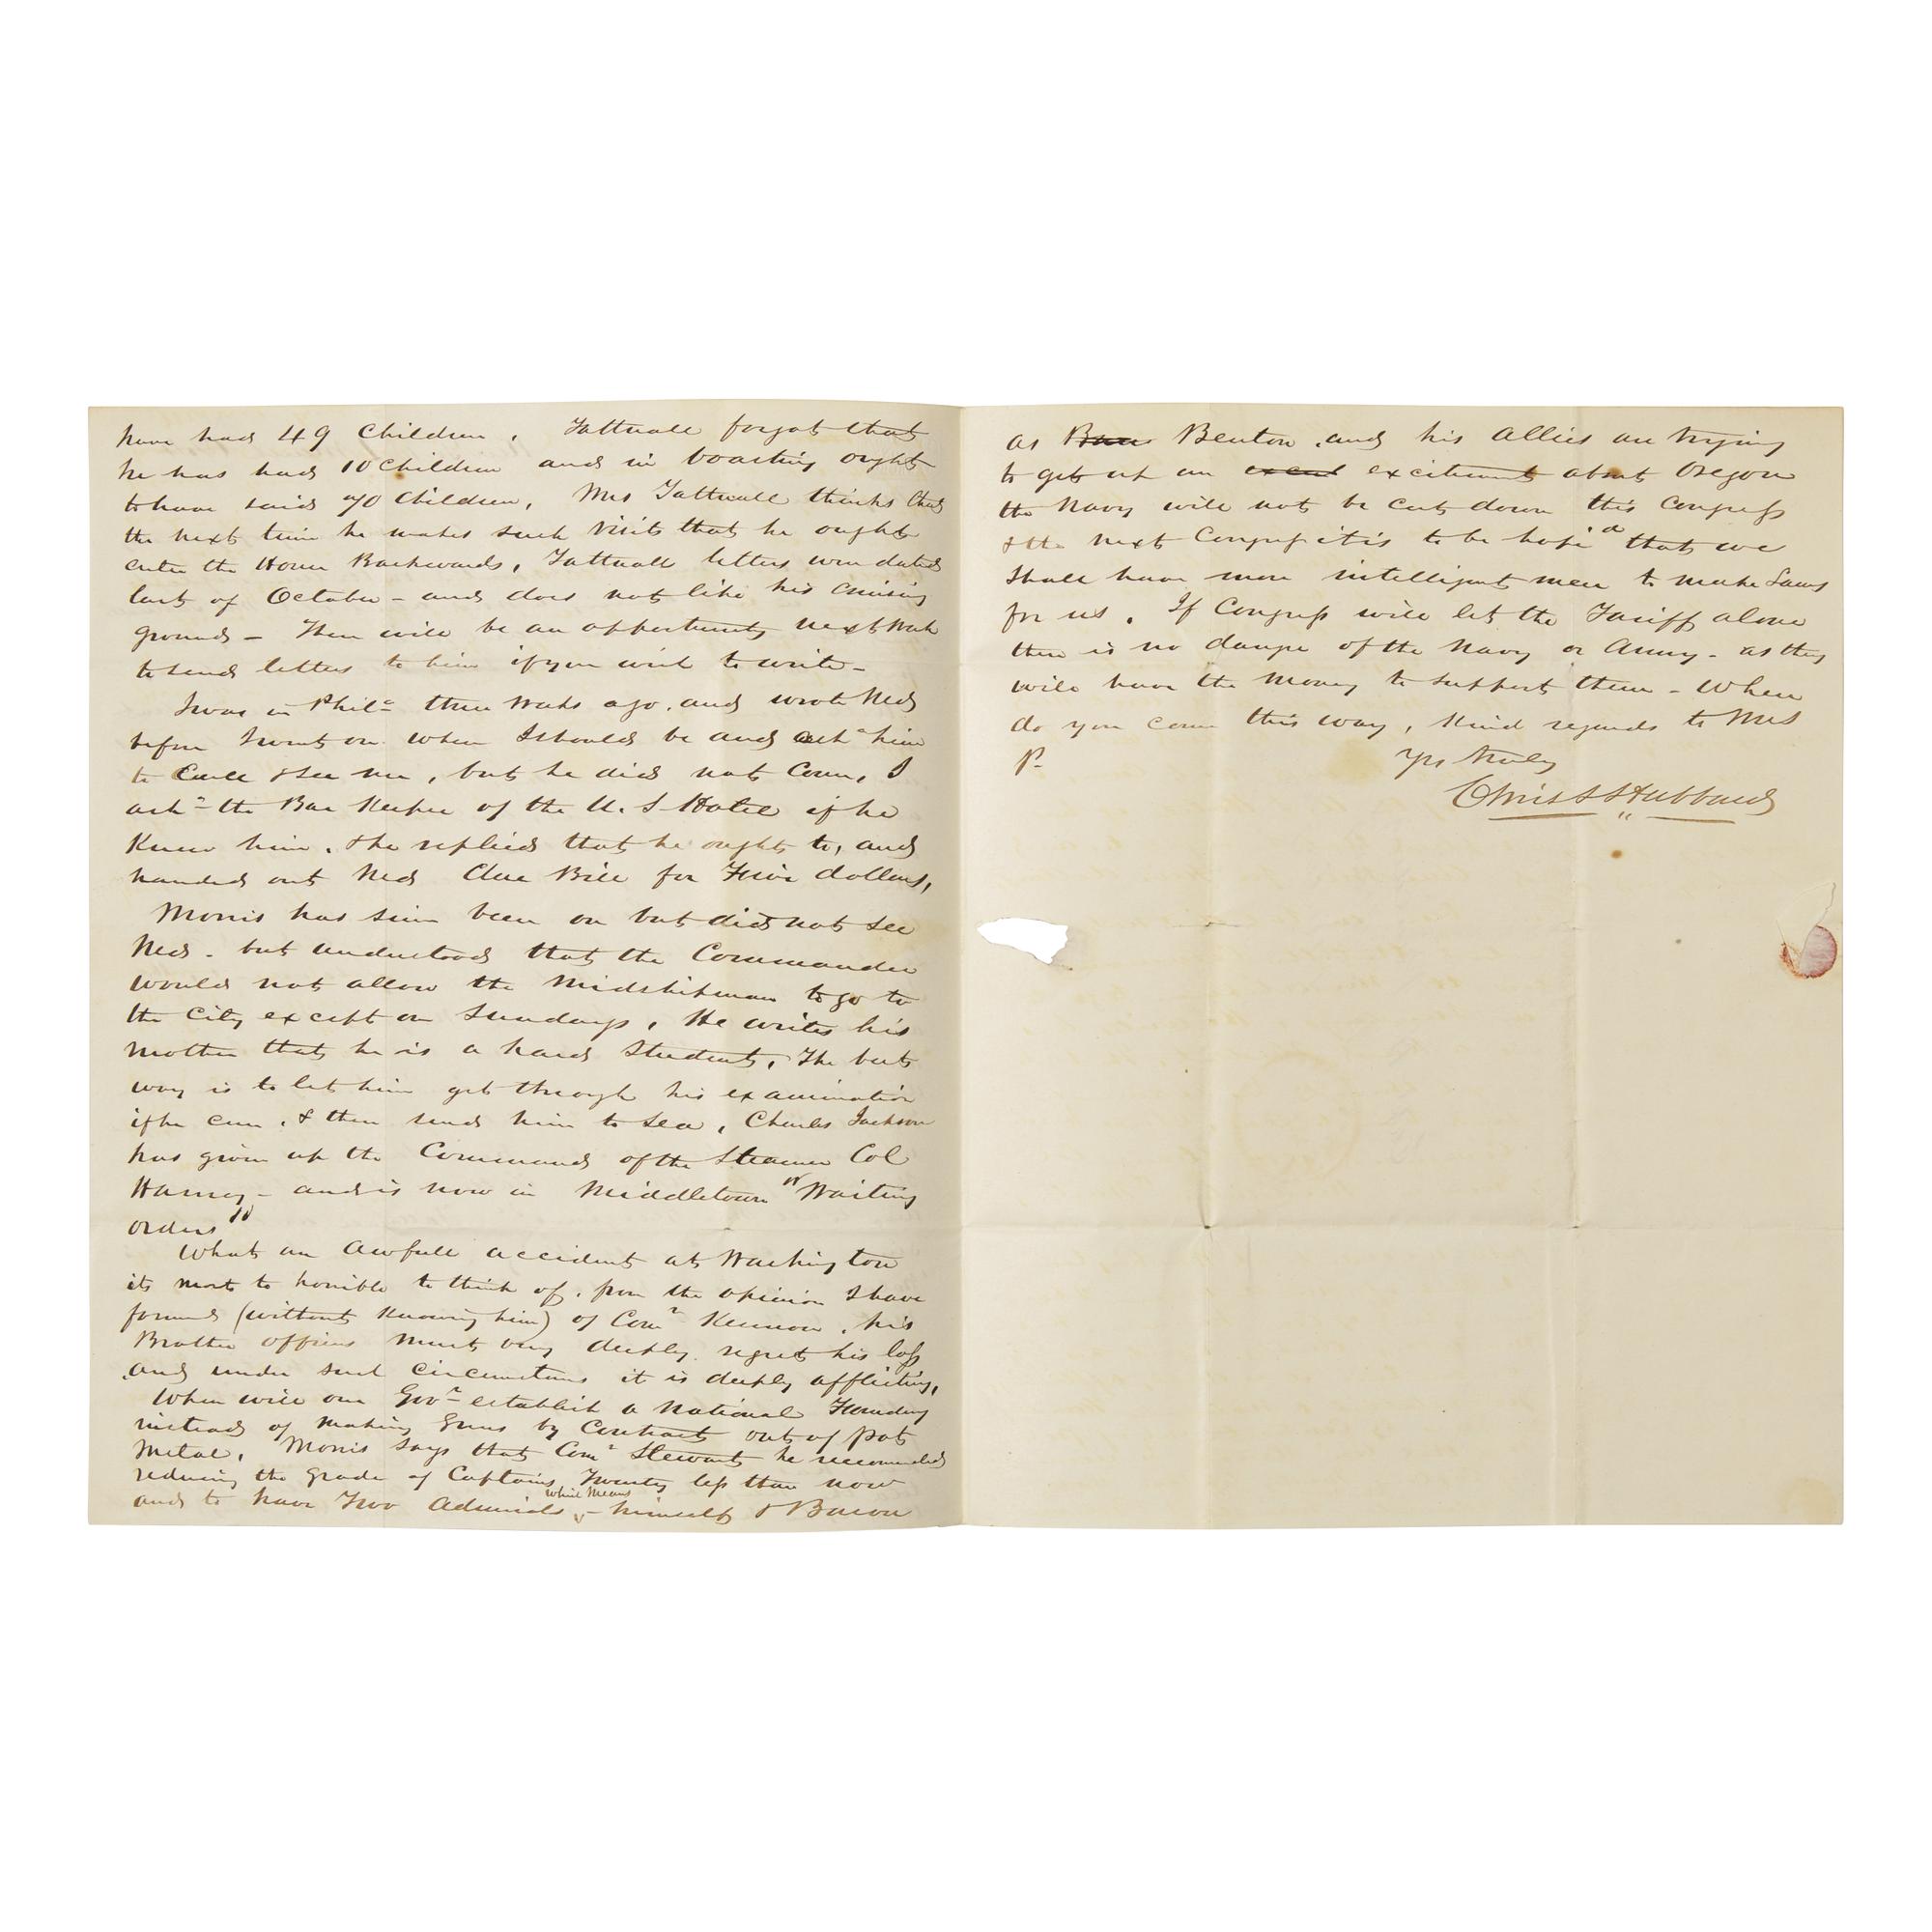 have had 49 Children, Tattnall forgot that
he has had 10 Children and in boasting ought
to have said 70 Children, Mrs Tattnall thinks that
the next time he makes such visits that he ought
enter the House Backwards, Tattnall letters were dated
last of October - and does not like his cruising
grounds - There will be an opportunity next Week
to send letters to him if you wish to write -
I was in Phila three Weeks ago, and wrote Ned
before I went on when I should be and askd him
to Call & see me, but he did not Come, I
askd the Bar Keeper of the U. S Hotel if he
Knew him, & he replied that he ought to, and
handed out Neds due Bill for Five dollars,
Morris has since been on but did not see
Ned - but understood that the Commander
would not allow the Midshipman to go to
the City except on Sundays, He writes his
Mother that he is a hard Student, The best
way is to let him get through his examination
if he can, & then send him to Sea, Charles Jackson
has given up the Command of the Steamer Col
Harney - and is now in Middletown "Waiting
orders"
What an Awfull accident at Washington
its most to horrible to think of, from the opinion I have
formed (without Knowing him) of Comr Kennon, his
Brother officers must very deeply regret his loss
and under such circumstans it is deeply afflicting,
When will our Govt establish a National Foundry
instead of making Guns by Contract out of pot
Metal, Morris says that Comr Stewart he recommended
reducing the grade of Captains Twenty less than now
and to have Two Admirals which means - himself & Baron
as Benton and his Allies are trying
to get up an excitement about Oregon
the Navy will not be cut down this Congress
& the next Congress it is to be hoped that we
Shall have more intelligent men to make Laws
for us. If Congress will let the Tariff alone
there is no danger of the Navy or Army - as they
will have the Money to support them - When
do you come this way, Kind regards to Mrs
P. Yrs truly
Chris S Hubbard